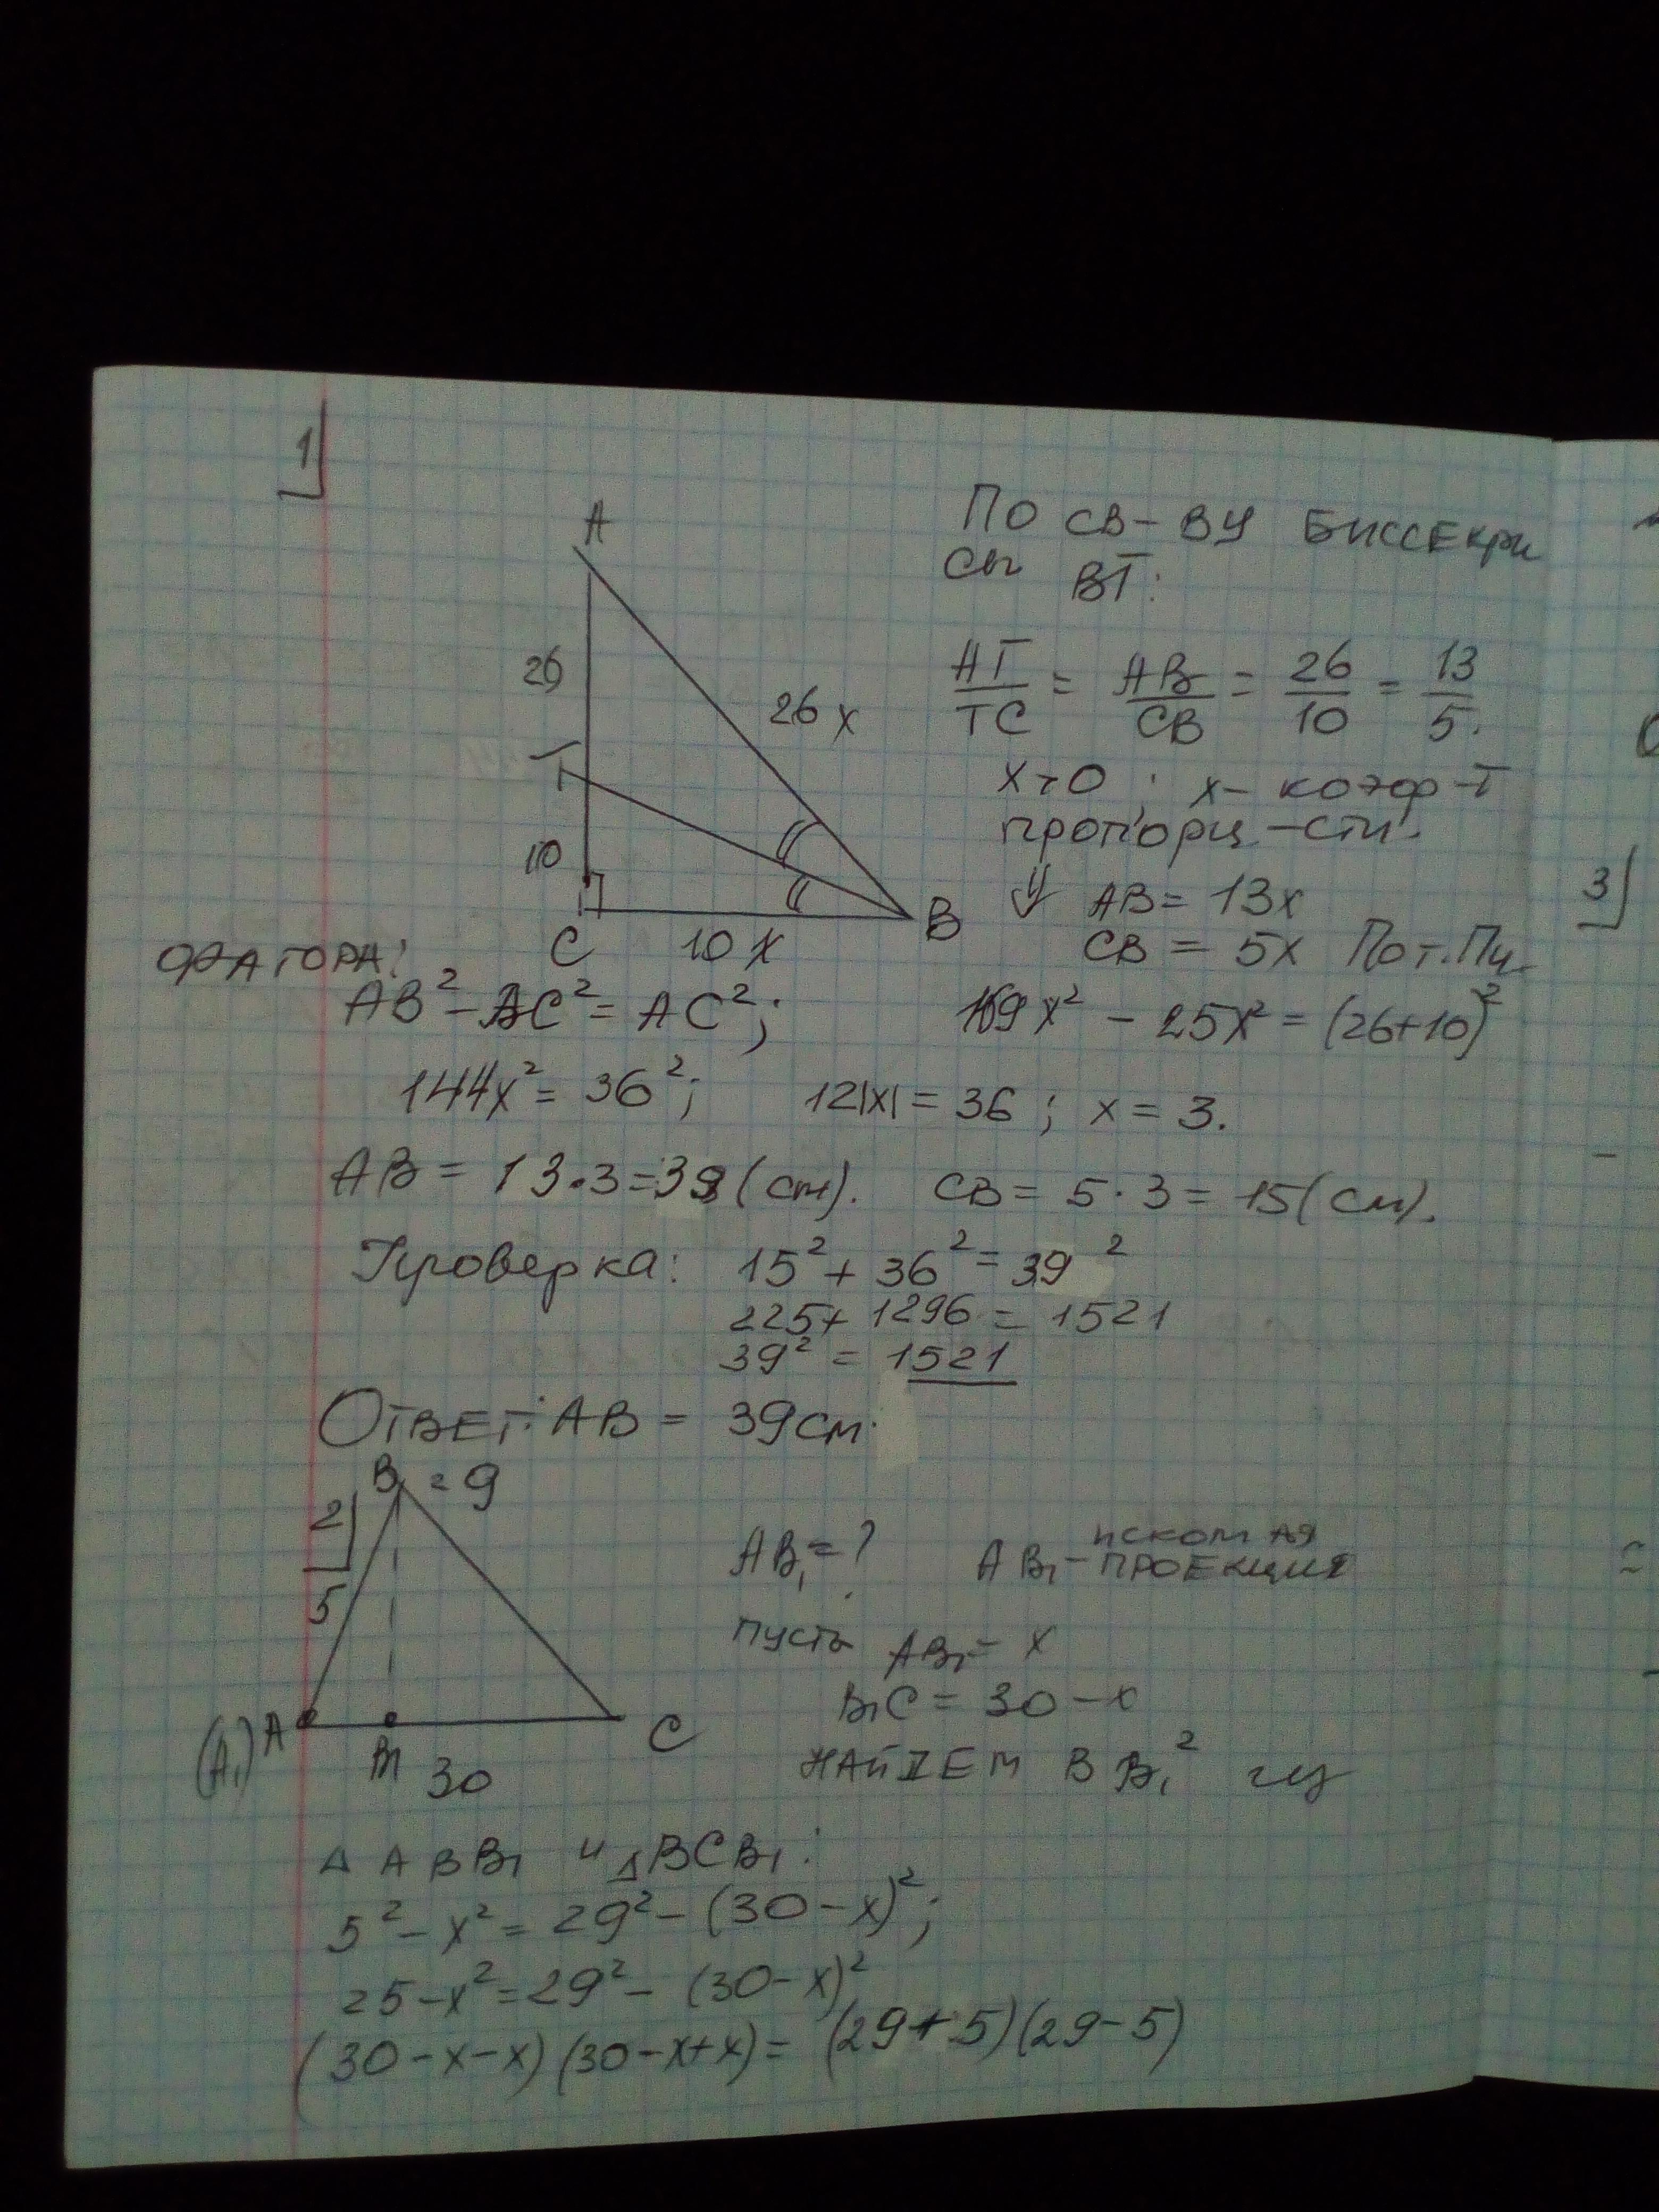 1
A
По св-ву биссектри
сы BT:
26
26x
AT/TC = AB/CB = 26/10 = 13/5.
T
x>0; x- коэф-т
пропорц-сти.
10
⇓ AB = 13x
3
C 10x B
CB = 5x По т. Пи-
фагора:
AB² - BC² = AC²; 169x² - 25x² = (26+10)²
144x² = 36²; 12|x| = 36; x = 3.
AB = 13·3 = 39 (см). CB = 5·3 = 15 (см).
Проверка: 15² + 36² = 39²
225 + 1296 = 1521
39² = 1521
Ответ: AB = 39 см.
2
B = 9
AB₁ = ? AB₁ - искомая
проекция
5
пусть AB₁ = x
B₁C = 30 - x
(A₁) A B₁ C
30
НАЙДЕМ BB₁² из
△ABB₁ и △BCB₁:
5² - x² = 29² - (30-x)²;
25 - x² = 29² - (30-x)²
(30-x-x)(30-x+x) = (29+5)(29-5)